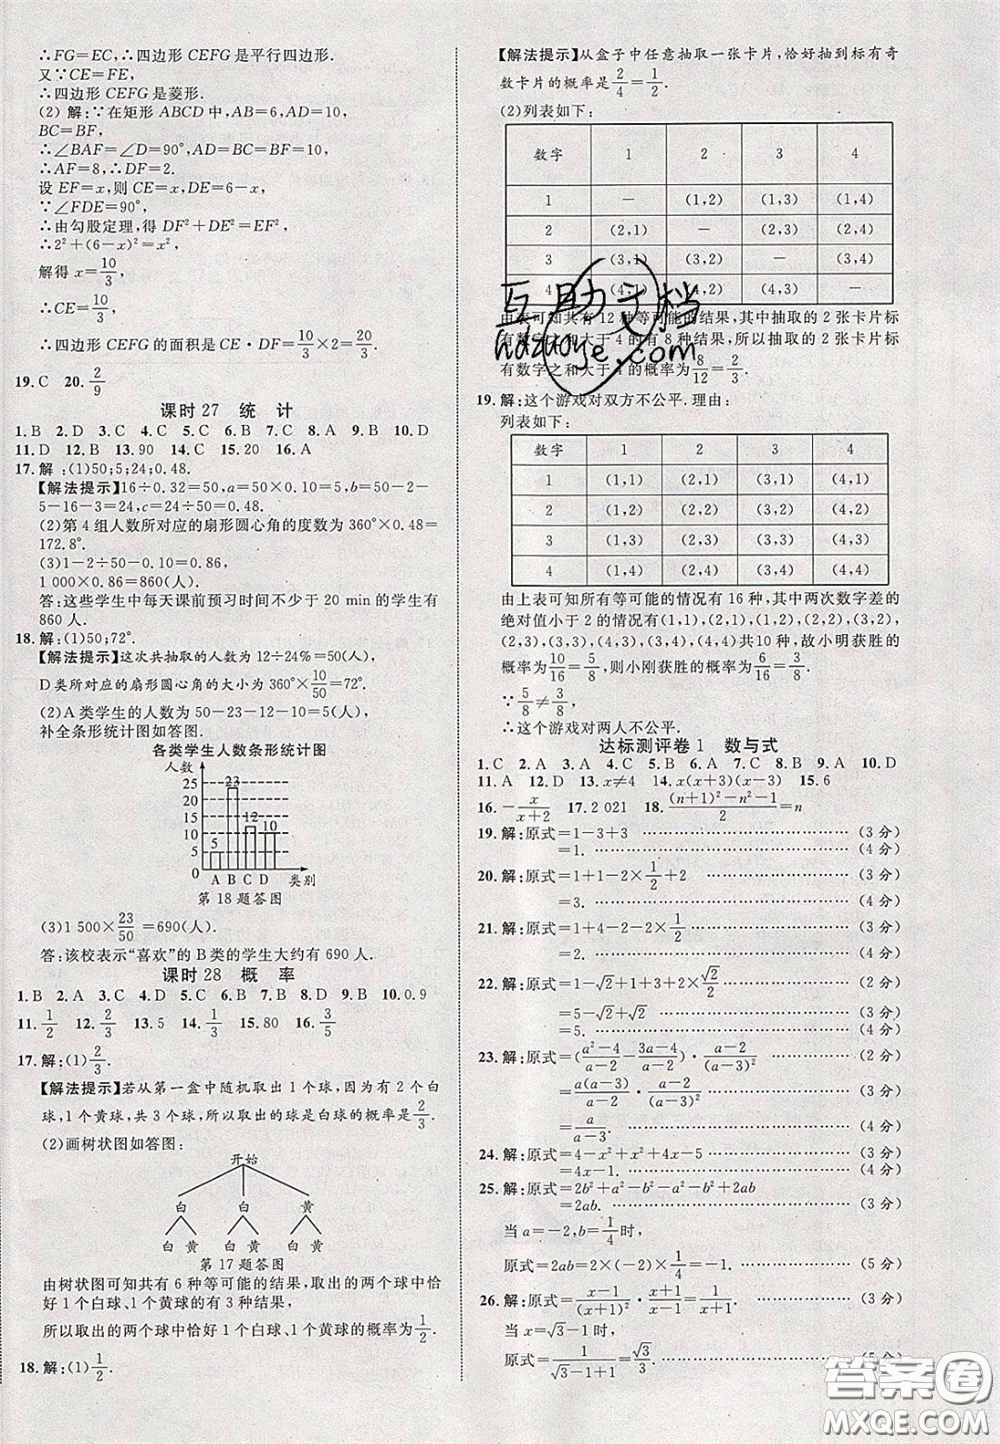 ∴FG=EC,∴四边形 CEFG 是平行四边形.
又∵CE=FE,
∴四边形 CEFG 是菱形.
(2) 解:∵在矩形 ABCD 中,AB=6,AD=10,
BC=BF,
∴∠BAF=∠D=90°,AD=BC=BF=10,
∴AF=8,∴DF=2.
设 EF=x,则 CE=x,DE=6-x,
∵∠FDE=90°,
∴由勾股定理,得 DF²+DE²=EF²,
∴2²+(6-x)²=x²,
解得 x=10/3,
∴CE=10/3,
∴四边形 CEFG 的面积是 CE·DF=10/3×2=20/3.
19.C 20.2/9
课时 27 统 计
1.B 2.D 3.C 4.C 5.C 6.B 7.C 8.A 9.B 10.D
11.D 12.B 13.90 14.C 15.20 16.A
17.解:(1)50;5;24;0.48.
【解法提示】16÷0.32=50,a=50×0.1=5,b=50-2-
5-16-3=24,c=24÷50=0.48.
(2)第 4 组人数所对应的扇形圆心角的度数为 360°×0.48=
172.8°.
(3)1-2÷50-0.1=0.86,
1 000×0.86=860(人).
答:这些学生中每天课前预习时间不少于 20 min 的学生有
860 人.
18.解:(1)50;72°.
【解法提示】这次共抽取的人数为 12÷24%=50(人),
D 类所对应的扇形圆心角的大小为 360°×10/50=72°.
(2)A 类学生的人数为 50-23-12-10=5(人),
补全条形统计图如答图.
各类学生人数条形统计图
人数
25
20
15
10
5
0
5 23 12 10
A B C D 类别
第 18 题答图
(3)1 500×23/50=690(人).
答:该校表示“喜欢”的 B 类的学生大约有 690 人.
课时 28 概 率
1.B 2.A 3.C 4.D 5.C 6.D 7.B 8.C 9.B 10.0.9
11.1/2 12.2/3 13.5 14.1/3 15.80 16.3/5
17.解:(1)2/3.
【解法提示】若从第一盒中随机取出 1 个球,因为有 2 个白
球,1 个黄球,共 3 个球,所以取出的球是白球的概率是2/3.
(2)画树状图如答图:
开始
白 白 黄
白 黄 白 黄 白 黄
第 17 题答图
由树状图可知共有 6 种等可能的结果,取出的两个球中恰
好 1 个白球、1 个黄球的有 3 种结果,
所以取出的两个球中恰好 1 个白球、1 个黄球的概率为1/2.
18.解:(1)1/2.
【解法提示】从盒子中任意抽取一张卡片,恰好抽到标有奇
数卡片的概率是2/4=1/2.
(2)列表如下:
数字 1 2 3 4
1 — (1,2) (1,3) (1,4)
2 (2,1) — (2,3) (2,4)
3 (3,1) (3,2) — (3,4)
4 (4,1) (4,2) (4,3) —
由表可知共有 12 种等可能的结果,其中抽取的 2 张卡片标
有数字之和大于 4 的有 8 种结果,所以抽取的 2 张卡片标
有数字之和大于 4 的概率为8/12=2/3.
19.解:这个游戏对双方不公平.理由:
列表如下:
数字 1 2 3 4
1 (1,1) (2,1) (3,1) (4,1)
2 (1,2) (2,2) (3,2) (4,2)
3 (1,3) (2,3) (3,3) (4,3)
4 (1,4) (2,4) (3,4) (4,4)
由上表可知所有等可能的情况有 16 种,其中两次数字差的
绝对值小于 2 的情况有(1,1),(2,1),(1,2),(2,2),(3,2),
(2,3),(3,3),(4,3),(3,4),(4,4)共10 种,故小明获胜的
概率为10/16=5/8,则小刚获胜的概率为6/16=3/8.
∵5/8≠3/8,
∴这个游戏对两人不公平.
达标测评卷 1 数与式
1.C 2.A 3.A 4.C 5.C 6.B 7.C 8.A 9.C 10.D
11.A 12.D 13.x≠4 14.x(x+3)(x-3) 15.6
16.-x/(x+2) 17.2 021 18.((n+1)²-n²-1)/2=n
19.解:原式=1-3+3 …… (3 分)
=1. …… (4 分)
20.解:原式=1+1-2×1/2+2 …… (3 分)
=3. …… (4 分)
21.解:原式=1+4-2-2×1/2 …… (3 分)
=2. …… (4 分)
22.解:原式=1-√2+1+3+2×√2/2 …… (3 分)
=5-√2+√2 …… (4 分)
=5. …… (5 分)
23.解:原式=((a²-4)/(a-2)-(3a-4)/(a-2))·(a-2)/(a-3)² …… (2 分)
=a(a-3)/(a-2)·(a-2)/(a-3)² …… (3 分)
=a/(a-3). …… (4 分)
24.解:原式=4-x²+x²+4x-5 …… (3 分)
=4x-1. …… (4 分)
25.解:原式=2b²+a²-b²-a²-b²+2ab
=2ab. …… (3 分)
当 a=-2,b=1/4时,
原式=2ab=2×(-2)×1/4=-1. …… (5 分)
26.解:原式=(x-1)/(x+1)²÷(x-1)/(x+1)=1/(x+1) …… (3 分)
当 x=√3-1时,
原式=1/(√3-1+1)=√3/3. …… (5 分)
互助文档
hdzuoye.com
答案圈
MXQE.COM